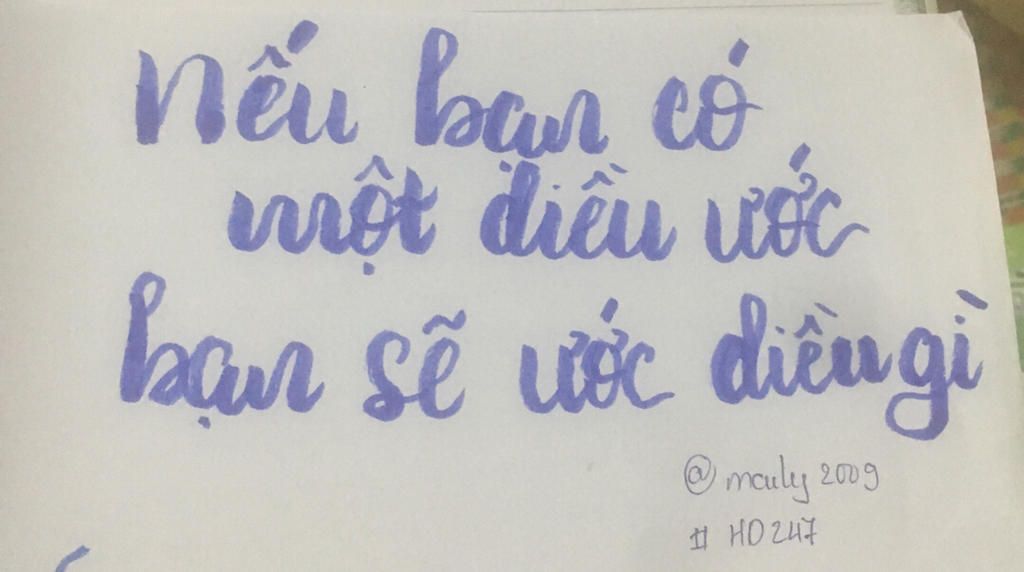 Nếu bạn có
một điều ước
bạn sẽ ước điều gì
@mculy2009
#HD247